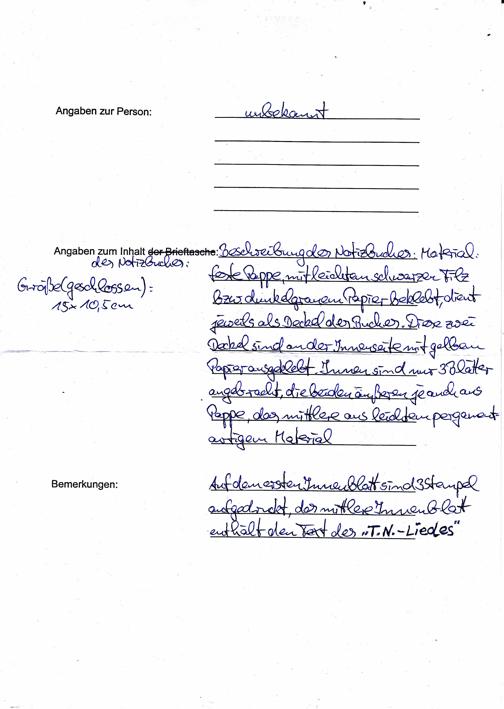 Angaben zur Person: unbekannt
Angaben zum Inhalt der Brieftasche: Beschreibung des Notizbuches: Material:
des Notizbuches:
Größe (geschlossen):
15 x 10,5 cm
feste Pappe, mit leichten schwarzen Filz
bzw. dunkelgrauem Papier beklebt, dient
jeweils als Deckel des Buches. Diese zwei
Deckel sind an der Innenseite mit gelben
Papier ausgeklebt. Innen sind nur 3 Blätter
angebracht, die beiden äußeren je auch aus
Pappe, das mittlere aus leichten pergament
artigem Material
Bemerkungen: Auf dem ersten Innenblatt sind 3 Stempel
aufgedruckt, das mittlere Innenblatt
enthält den Text des „T.N.-Liedes"